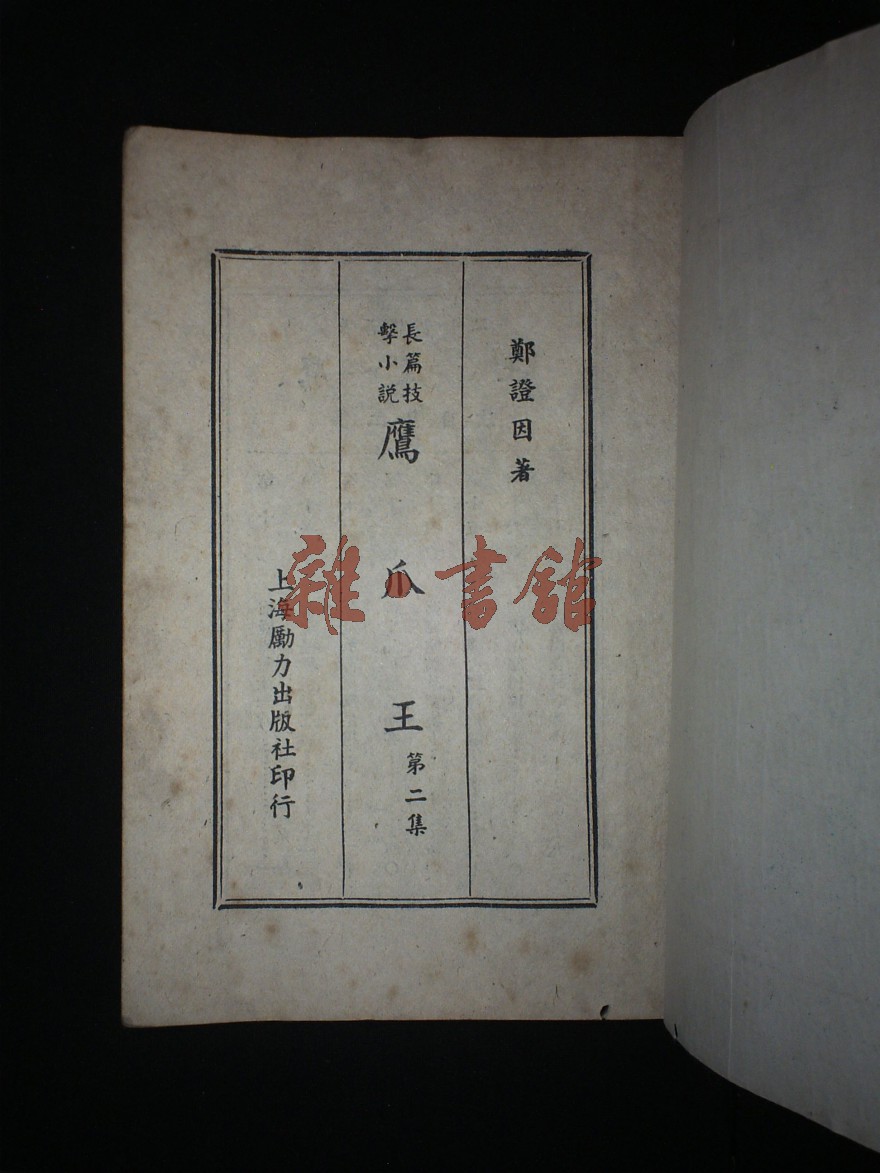 鄭證因著
長篇技
擊小説
鷹爪王
第二集
上海勵力出版社印行
雜·書館